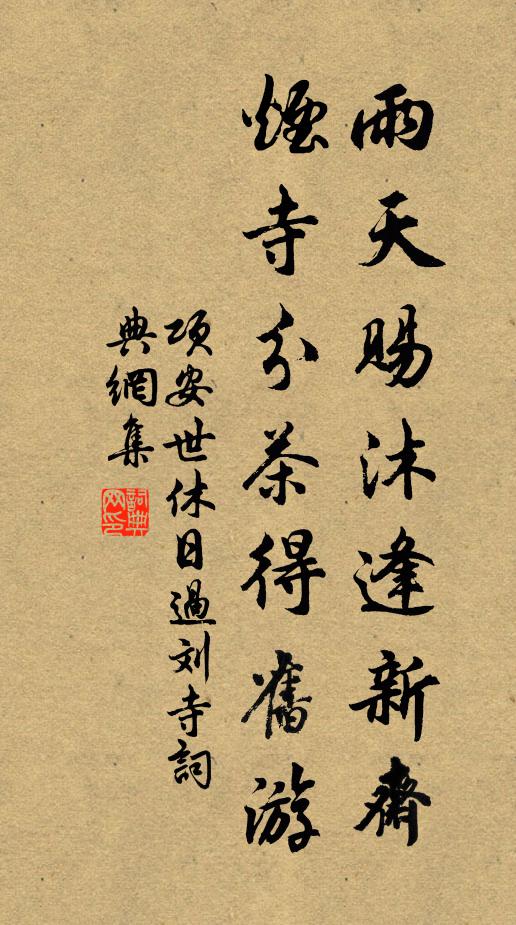 雨天賜沐逢新齋
煙寺分茶得舊游
项安世休日過刘寺詞
典網集
詞典
网印